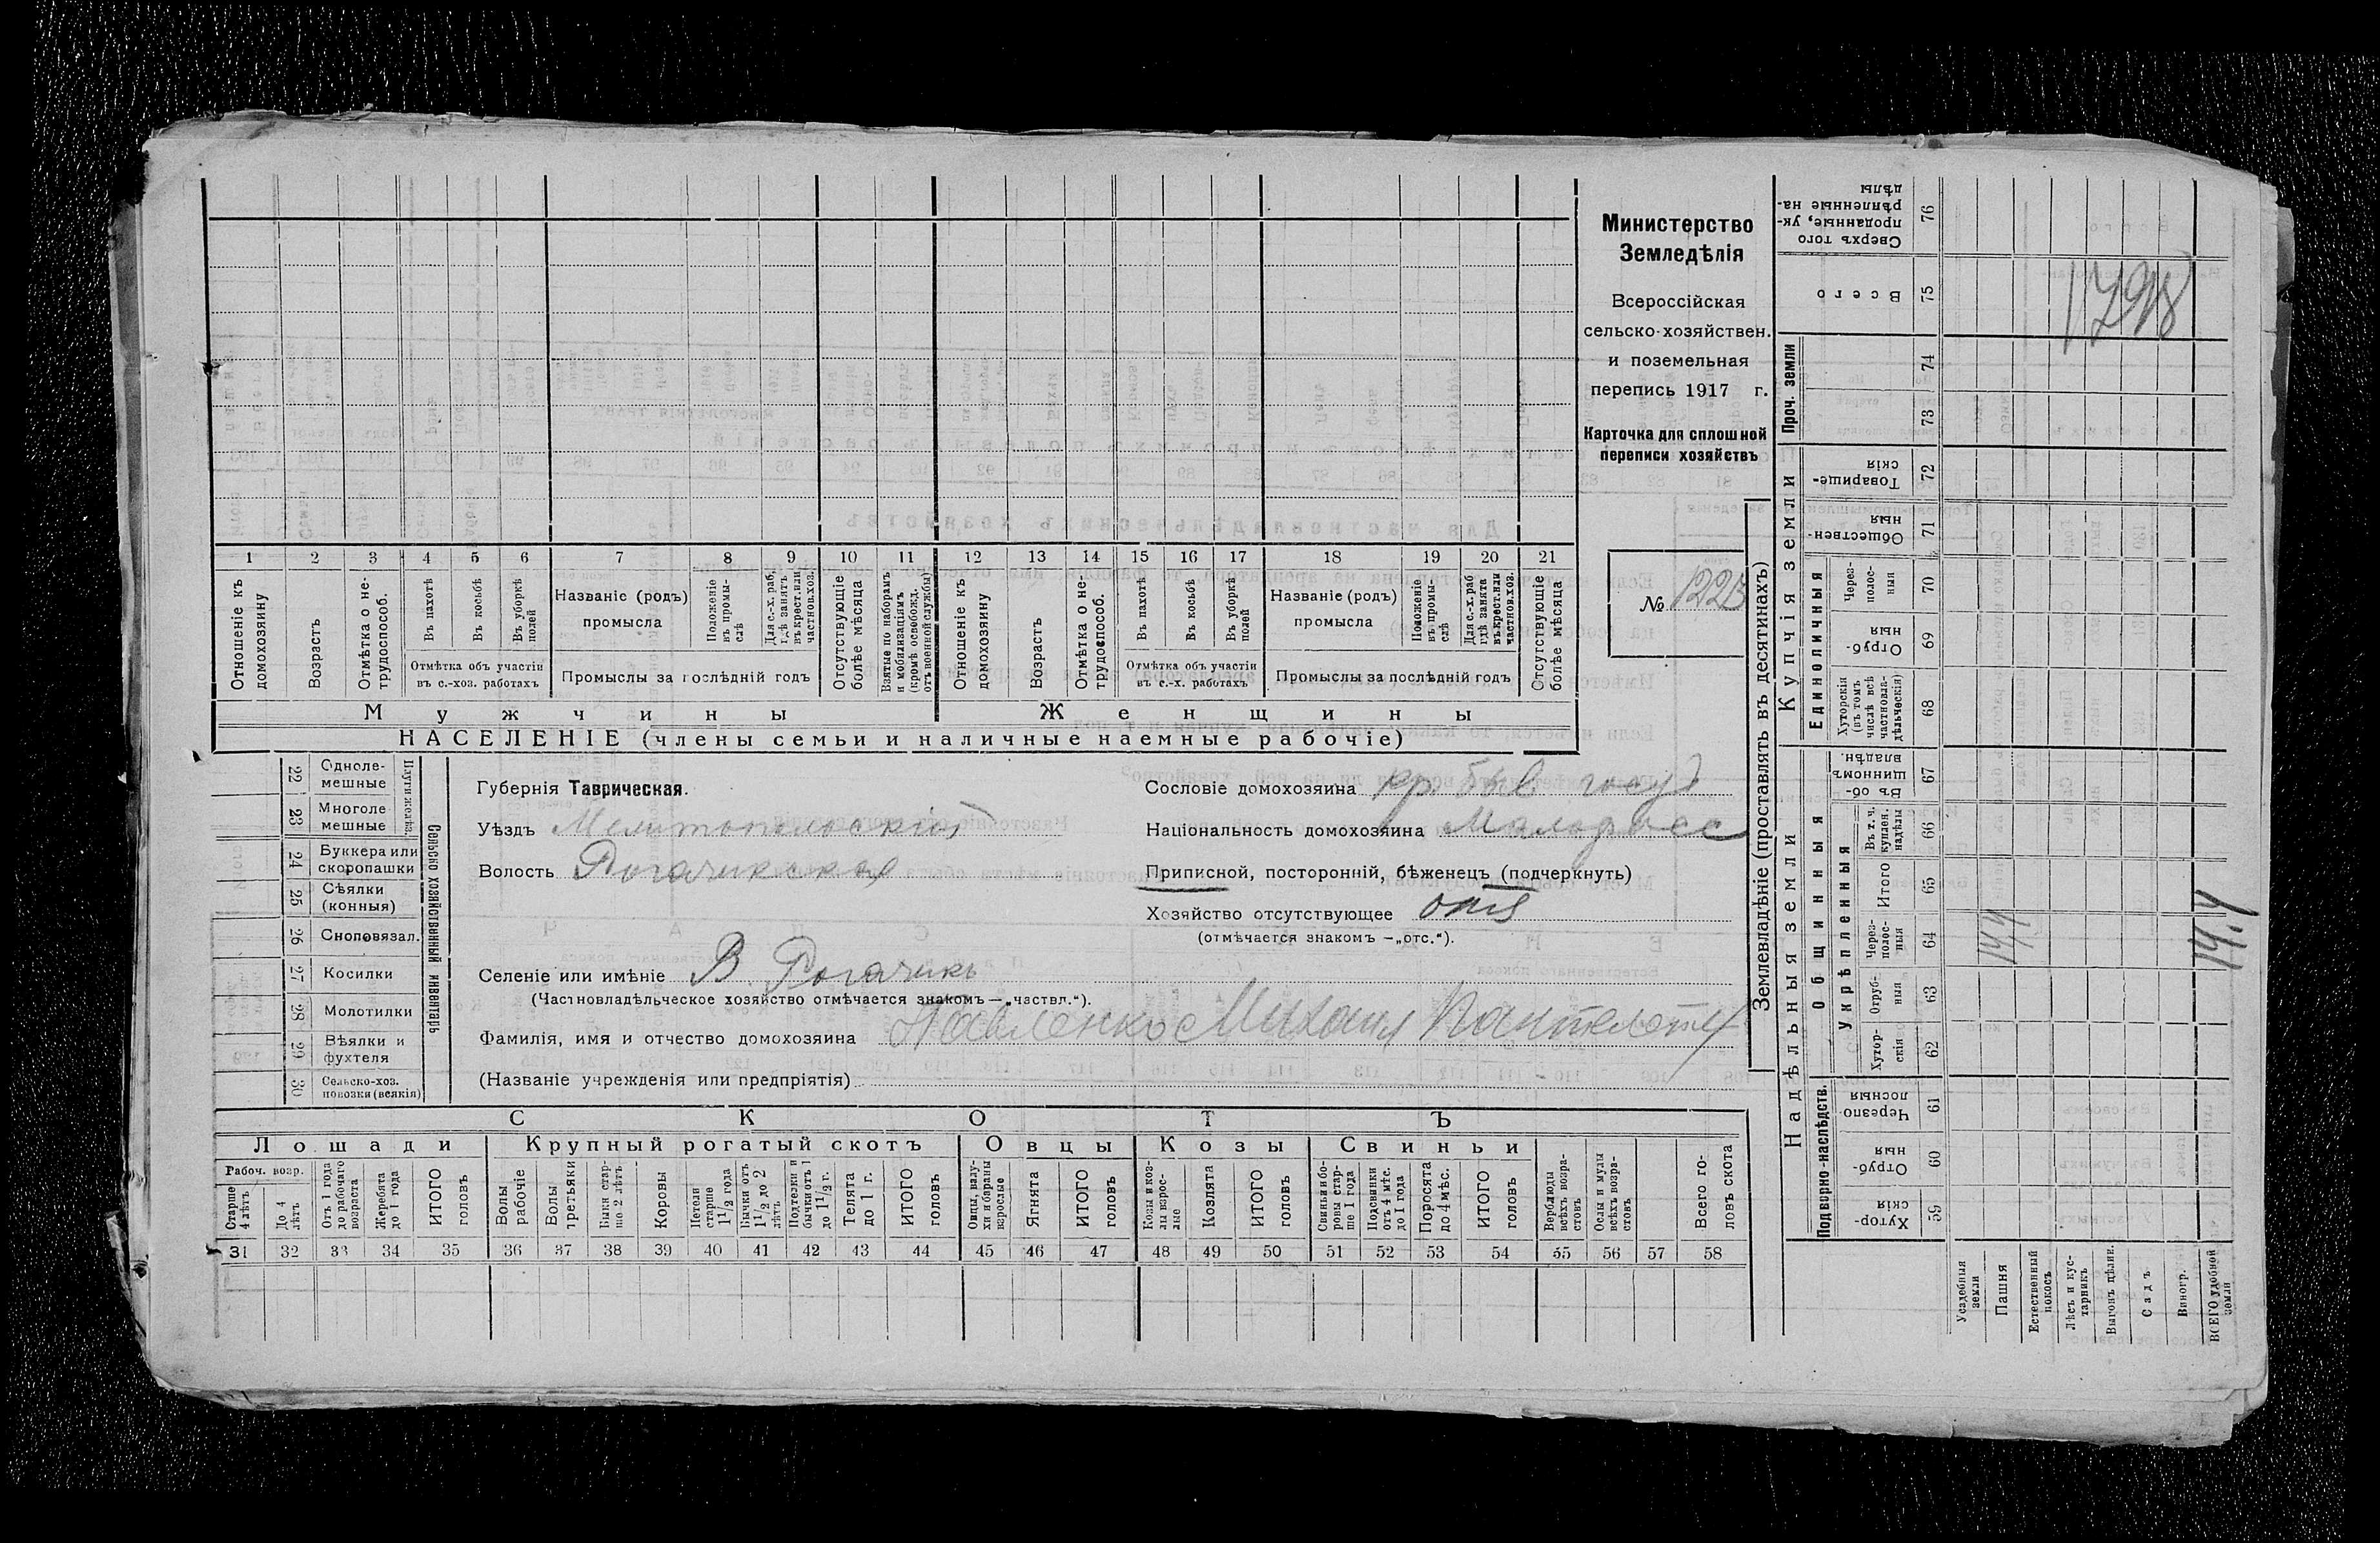 Министерство
Земледѣлія
Всероссійская
сельско-хозяйствен.
и поземельная
перепись 1917 г.
Карточка для сплошной
переписи хозяйствъ
№ 1223
1 2 3 4 5 6 7 8 9 10 11 12 13 14 15 16 17 18 19 20 21
Отношеніе къ домохозяину
Возрастъ
Отмѣтка о не-трудоспособ.
Въ пахотѣ
Въ косьбѣ
Въ уборкѣ полей
Отмѣтка объ участіи
въ с.-хоз. работахъ
Названіе (родъ)
промысла
Положеніе въ промы-слѣ
Для с.-х. раб. гдѣ занятъ въ крест. или частнов. хоз.
Промыслы за послѣдній годъ
Отсутствующіе болѣе мѣсяца
Взятые по наборамъ и мобилизаціямъ (кромѣ освобожд. отъ военной службы)
Отношеніе къ домохозяину
Возрастъ
Отмѣтка о не-трудоспособ.
Въ пахотѣ
Въ косьбѣ
Въ уборкѣ полей
Отмѣтка объ участіи
въ с.-х. работахъ
Названіе (родъ)
промысла
Положеніе въ промы-слѣ
Для с.-х. раб гдѣ занята въ крест. или частнов. хоз.
Промыслы за послѣдній годъ
Отсутствующіе болѣе мѣсяца
Мужчины Женщины
НАСЕЛЕНІЕ (члены семьи и наличные наемные рабочіе)
22 Одноле-мешные
23 Многоле мешные
24 Буккера или скоропашки
25 Сѣялки (конныя)
26 Сноповязал.
27 Косилки
28 Молотилки
29 Вѣялки и фухтеля
30 Сельско-хоз. повозки (всякія)
Сельско хозяйственный инвентарь
Губернія Таврическая.
Уѣздъ Мелитопольскій
Волость Рогачикская
Сословіе домохозяина кр. быв. госуд
Національность домохозяина Малоросс
Приписной, посторонній, бѣженецъ (подчеркнуть)
Хозяйство отсутствующее отс
(отмѣчается знакомъ —„отс.“).
Селеніе или имѣніе В Рогачикъ
(Частновладѣльческое хозяйство отмѣчается знакомъ —„частвл.“).
Фамилія, имя и отчество домохозяина Павленко Михаил Пантелет
(Названіе учрежденія или предпріятія)
СКОТЪ
Лошади Крупный рогатый скотъ Овцы Козы Свиньи
Рабоч. возр.
Старше 4 лѣтъ
До 4 лѣтъ
Отъ 1 года до рабочаго возраста
Жеребята до 1 года
ИТОГО головъ
Волы рабочіе
Волы третьяки
Быки стар-ше 2 лѣтъ
Коровы
Нетели старше 1 1/2 года
Бычки отъ 1 1/2 до 2 лѣтъ
Подтелки и бычки отъ 1 до 1 1/2 г.
Телята до 1 г.
ИТОГО головъ
Овцы, валу-хи и бараны взрослые
Ягнята
ИТОГО головъ
Козы и коз-лы взрос-лые
Козлята
ИТОГО головъ
Свиньи и бо-ровы стар-ше 1 года
Подсвинки отъ 4 мѣс. до 1 года
Поросята до 4 мѣс.
ИТОГО головъ
Верблюды всѣхъ возра-стовъ
Ослы и мулы всѣхъ возра-стовъ
Всего го-ловъ скота
31 32 33 34 35 36 37 38 39 40 41 42 43 44 45 46 47 48 49 50 51 52 53 54 55 56 57 58
Землевладѣніе (проставлять въ десятинахъ)
Надѣльныя земли Купчія земли Проч. земли
Подворно-наслѣдств.
Общинныя
Укрѣпленныя
Единоличныя
59 Хутор-скія
60 Отруб-ныя
61 Черезпо-лосныя
62 Хутор-скія
63 Отруб-ныя
64 Через-полос-ныя
65 Итого
66 Въ т. ч. куплен. надѣлы
67 Въ об-щинномъ владѣн.
68 Хуторскія (въ томъ числѣ всѣ частновла-дѣльческія)
69 Отруб-ныя
70 Через-полос-ныя
71 Обществен-ныя
72 Товарище-скія
73
74
75 Всего
76 Сверхъ того проданные, ук-рѣпленные на-дѣлы
Усадебныя земли
Пашня
Естественный покосъ
Лѣсъ и кус-тарникъ
Выгонъ цѣлин.
Садъ
Виногр.
ВСЕГО удобной земли
14,4
14.4
1798